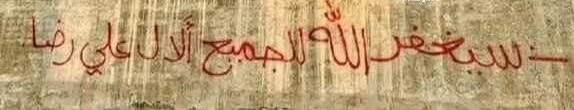 سيغفر الله للجميع ألا ل علي رضا